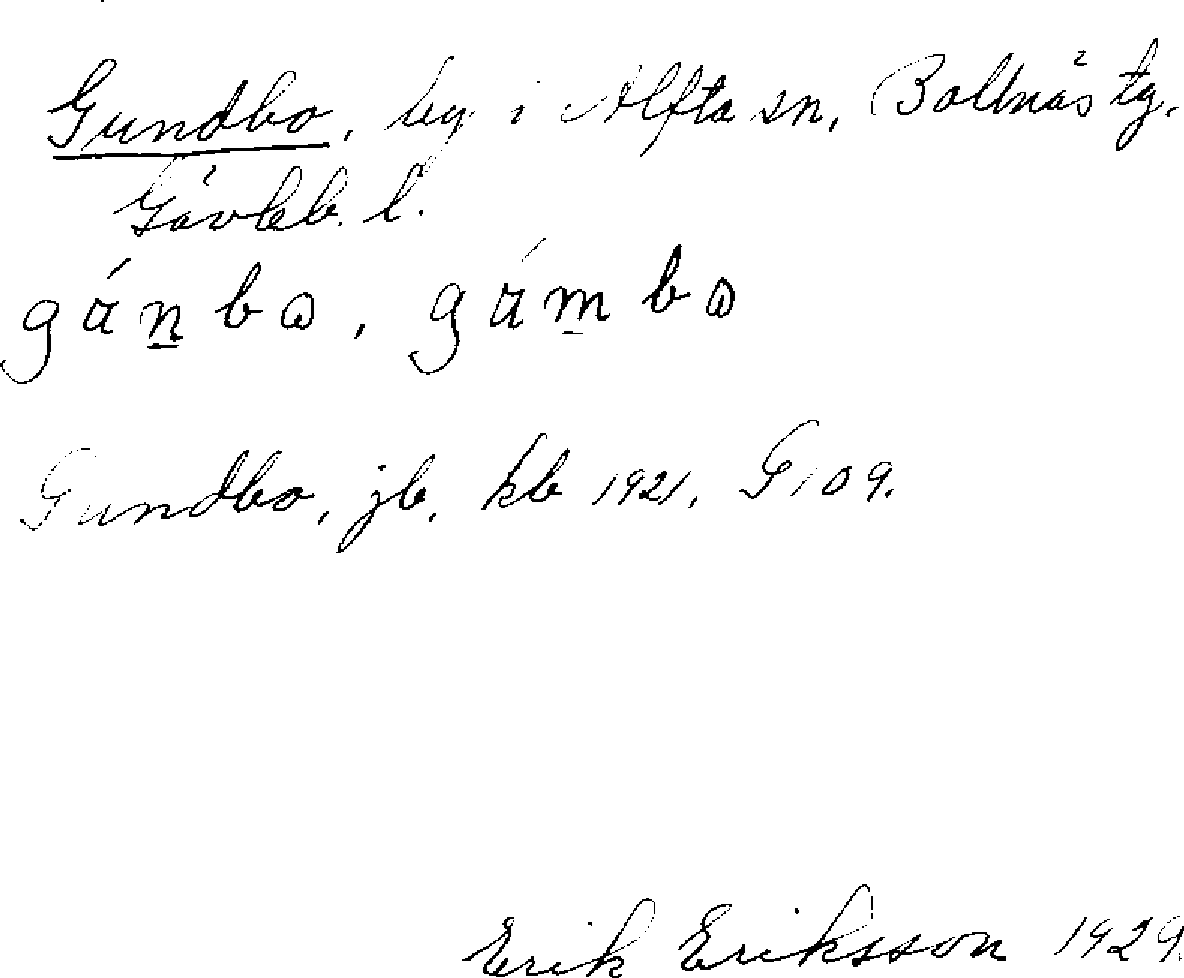 Gundbo, by i Alfta sn, Bollnäs tg.
Gävleb. l.
gán̲bω, gám̲bω
Gundbo, jb, kb 1921, G 109.
Erik Eriksson 1929.